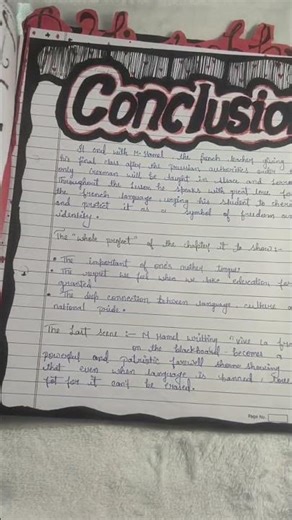 Conclusio
It end with M. Hamel the french teacher giving
his final class after the prussian authorities order
only German will be taught in Alsace and Lorra
Throughout the lesson he speaks with great love for
the french language urging his student to cheris
and protect it as a symbol of freedom and
identity.
The "whole project" of the chapter it to show:-
• The important of one's mother tongue.
• The regret we feel when we take education for
granted.
• The deep connection between language culture a
national pride.
The Last scene :- M Hamel writting "vive La fra
on the blackboard becomes a
powerful and patriotic farewell showing
that even when language is banned,
for it can't be erased.
Page No.